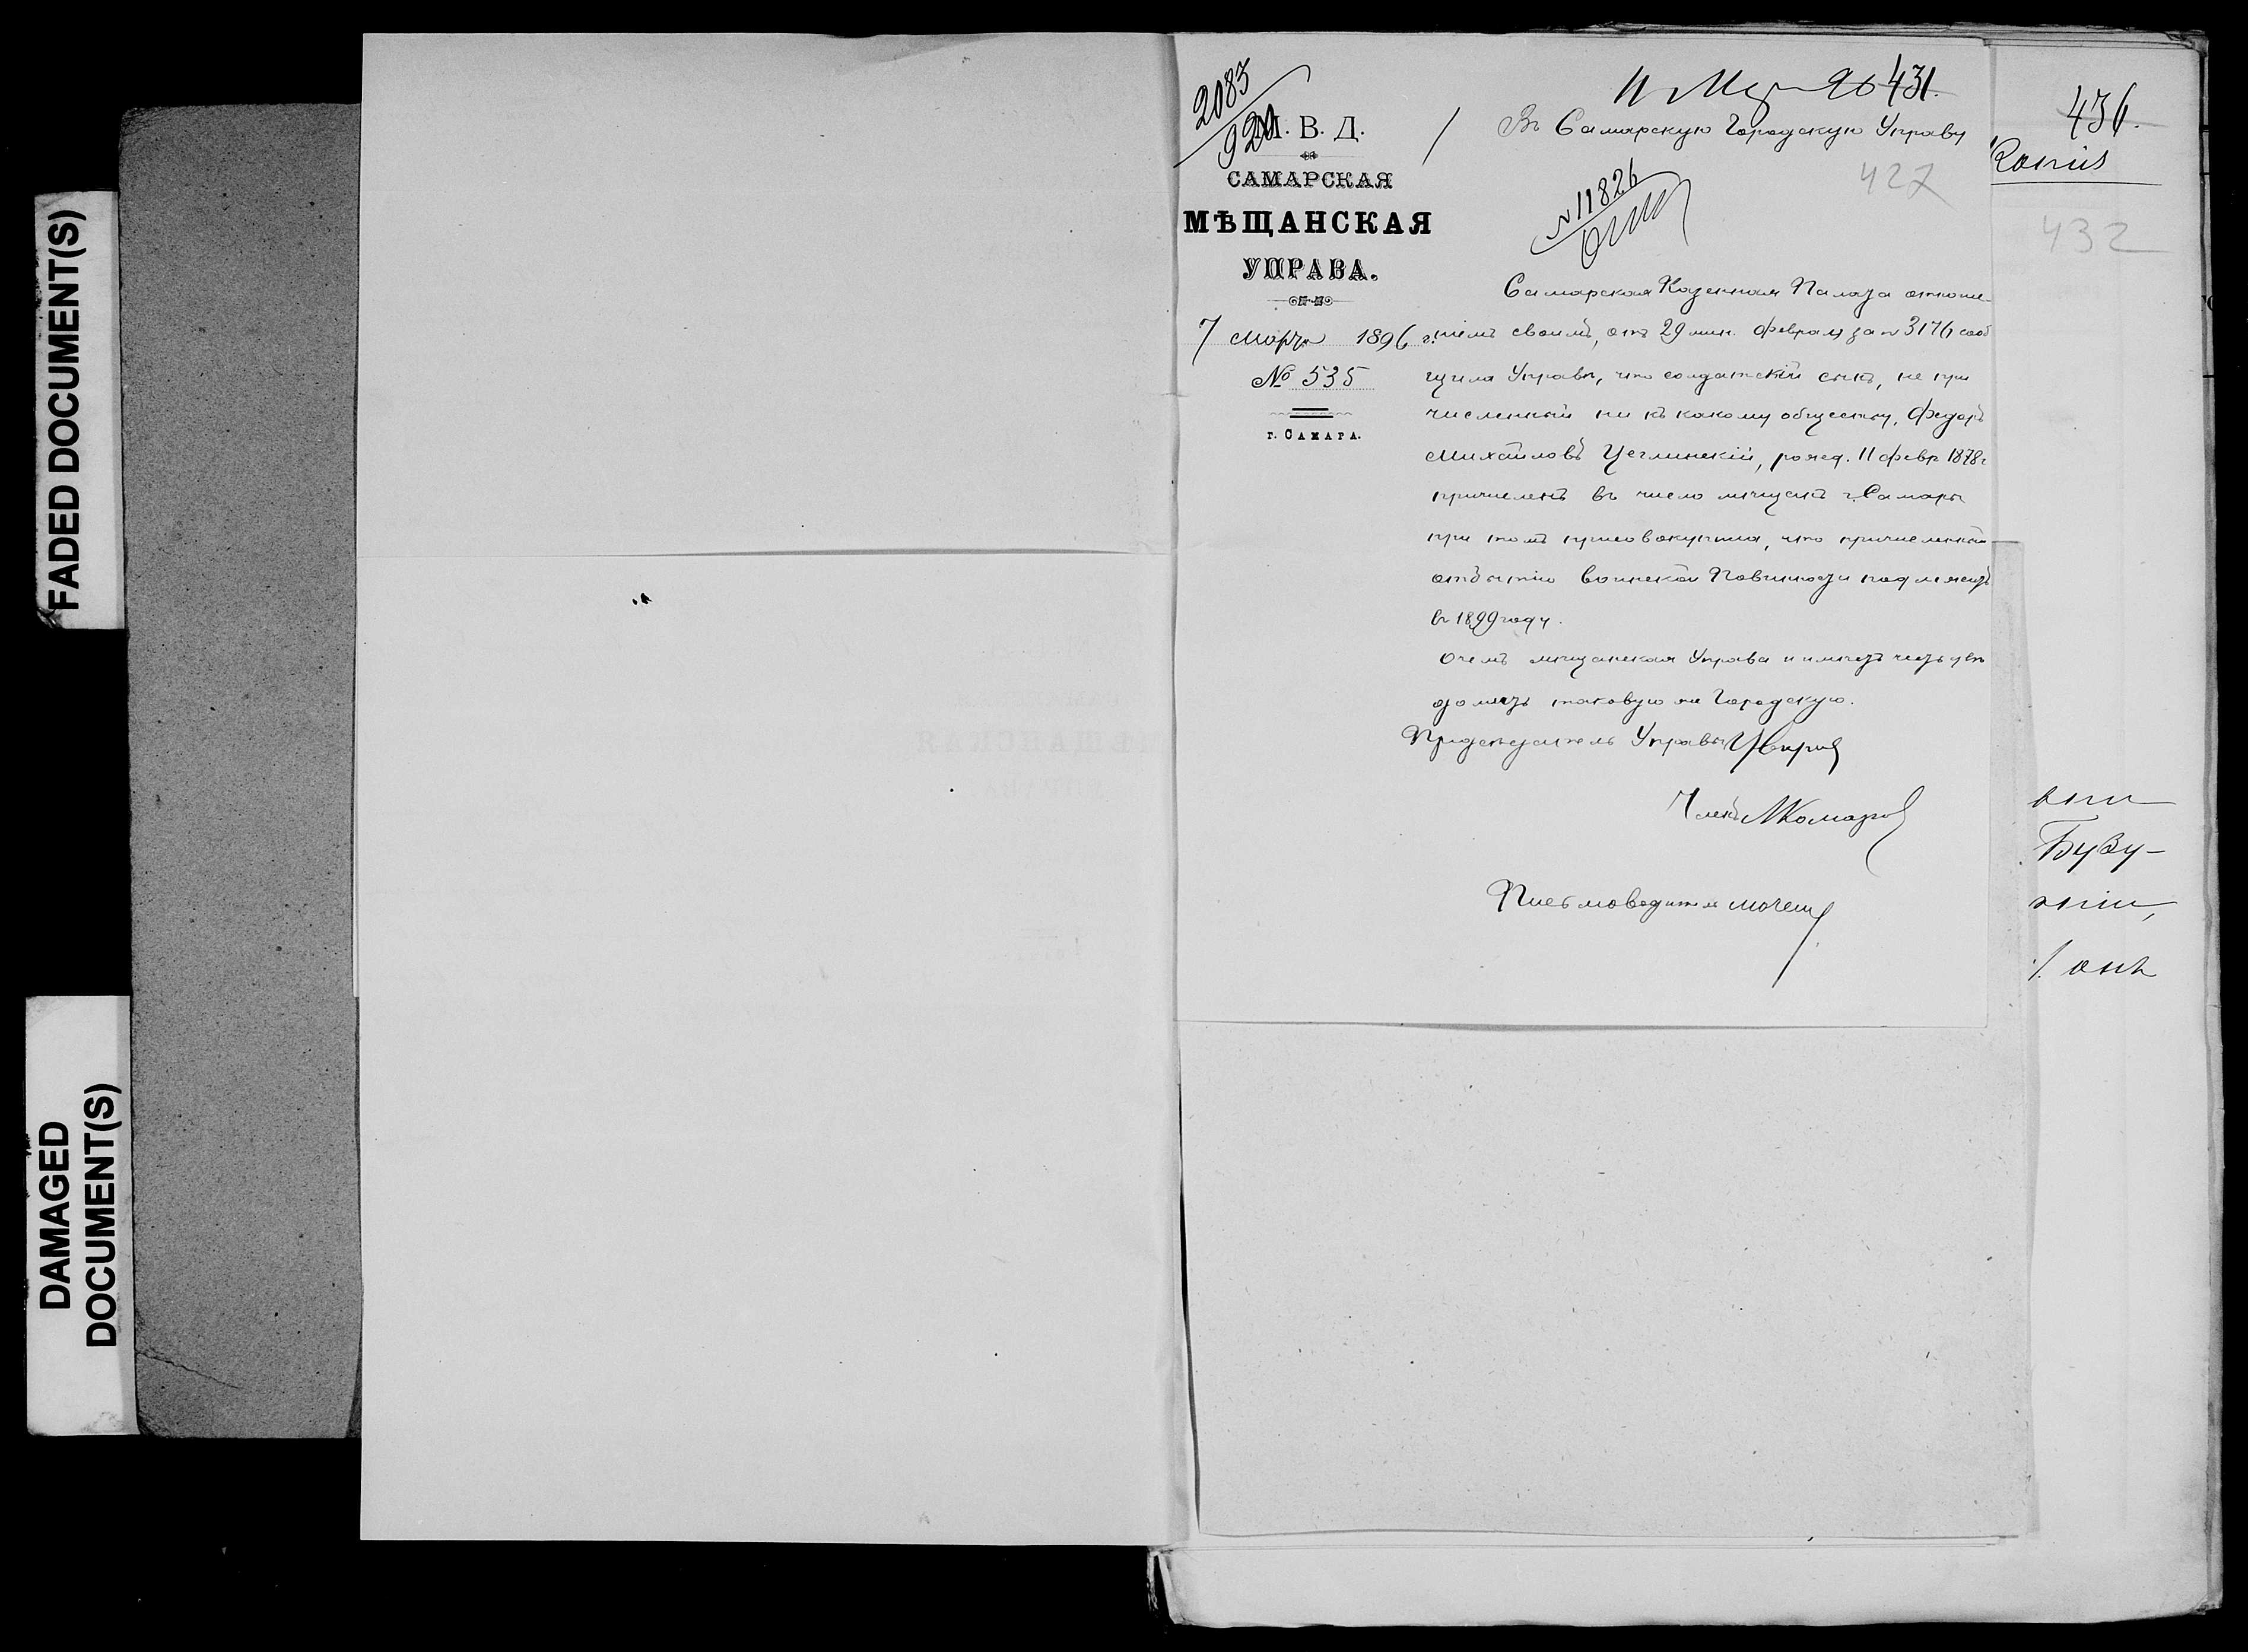 FADED DOCUMENT(S)
DAMAGED
DOCUMENT(S)
2083
920
М. В. Д.
САМАРСКАЯ
МѢЩАНСКАЯ
УПРАВА.
7 марта 1896 г.
№ 535
г. САМАРА.
11 Мар 96 431.
Въ Самарскую Городскую Управу
427
N 11826
Самарская Казенная Палата отноше-
ніемъ своимъ, отъ 29 мин. февраля за № 3176 сооб
щила Управѣ, что солдатскій сынъ, не при
численный ни къ какому обществу, Федоръ
Михайловъ Цеглинскій, рожд. 11 февр 1878 г
причисленъ въ число мѣщанъ г. Самары
при томъ присовокупила, что причисленный
отбытію воинской Повинности подлежитъ
въ 1899 году.
О чемъ мѣщанская Управа и имѣетъ честь увѣ
домить таковую же Городскую.
Предсѣдатель Управы
Членъ МКомаров
Письмоводитель
436.
Копія
432
Бузу-
онъ